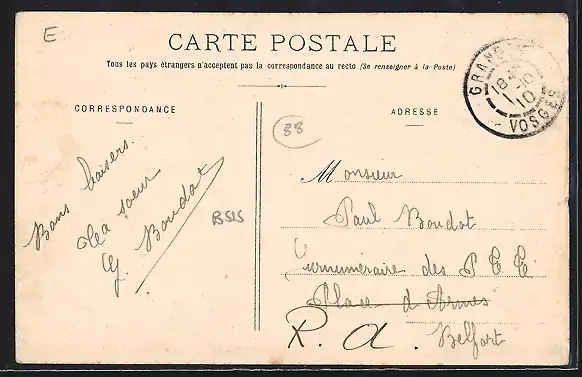 E
CARTE POSTALE
Tous les pays étrangers n'acceptent pas la correspondance au recto (Se renseigner à la Poste)
CORRESPONDANCE
ADRESSE
GRAND
18
10
10
VOSGES
88
Bons baisers.
Ta soeur
G. Boudot
BSIS
Monsieur
Paul Boudot
Surnuméraire des P T T
Place d'Armes
R. A. Belfort